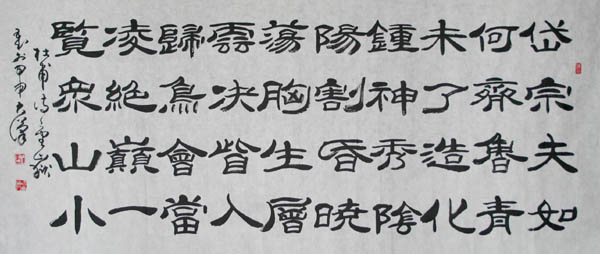 岱宗夫如
何齊魯青
未了造化
鍾神秀隂
陽割昏曉
蕩胸生層
雲决眥入
歸鳥會當
凌絕巔一
覽衆山小
杜甫詩望嶽
甲申